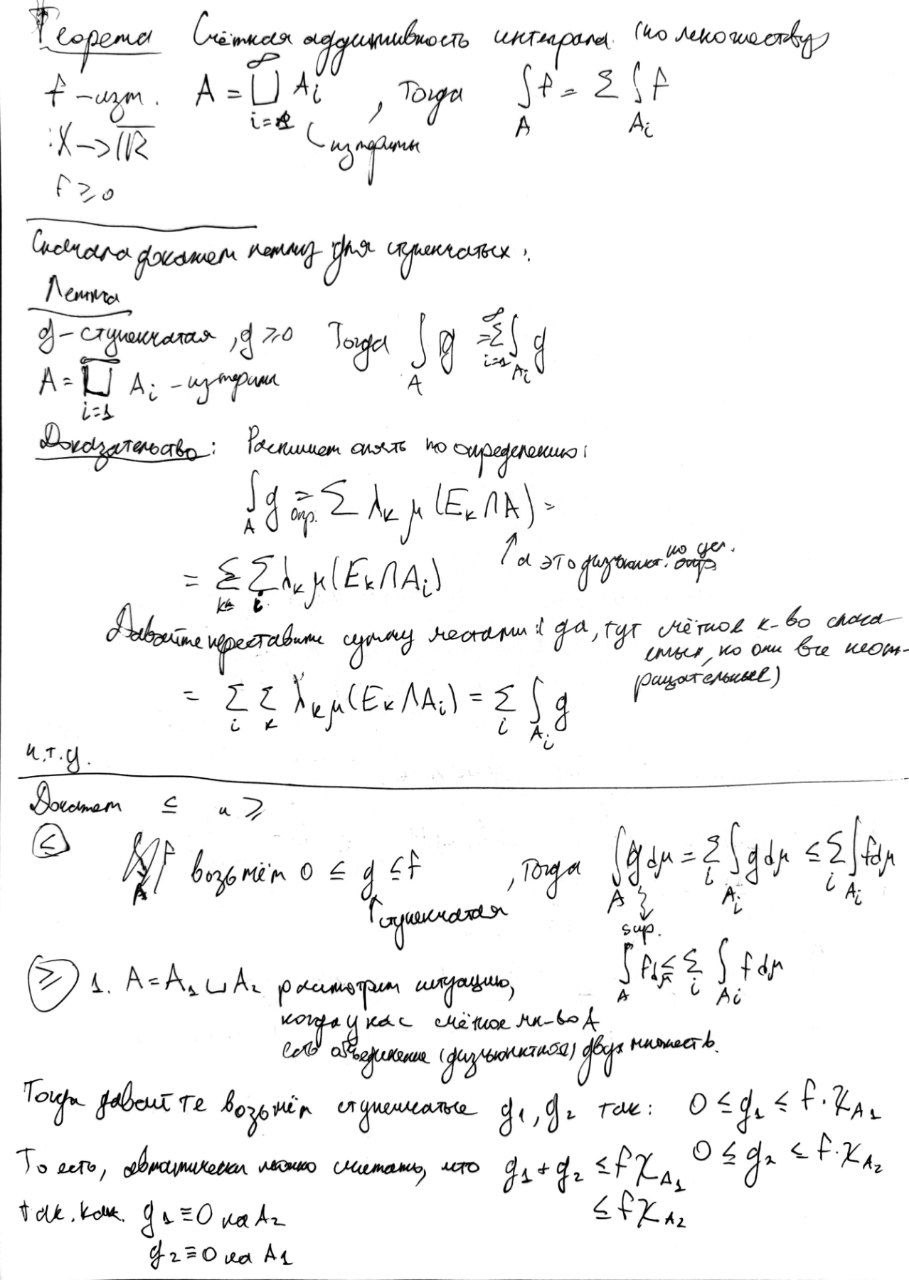 Теорема Счётная аддитивность интеграла (по множеству)
f – изм. A = ⨆_{i=1}^{∞} A_i , Тогда ∫_A f = Σ ∫_{A_i} f
: X → ℝ̅ измеримы
f ≥ 0
Сначала докажем лемму для ступенчатых:
Лемма
g – ступенчатая, g ≥ 0 Тогда ∫_A g = Σ_{i=1}^{∞} ∫_{A_i} g
A = ⨆_{i=1}^{∞} A_i – измерим
Доказательство: Распишем опять по определению:
∫_A g =_{опр.} Σ λ_k μ (E_k ∩ A) =
↑ а это дизъюнкт. по усл.
= Σ_k Σ_i λ_k μ (E_k ∩ A_i)
Давайте переставим сумму местами (да, тут счётное к-во слага-
емых, но они все неот-
рицательные)
= Σ_i Σ_k λ_k μ (E_k ∩ A_i) = Σ_i ∫_{A_i} g
ч.т.д.
Докажем ≤ и ≥
≤ возьмём 0 ≤ g ≤ f , Тогда ∫_A g dμ = Σ_i ∫_{A_i} g dμ ≤ Σ_i ∫_{A_i} f dμ
↑ ступенчатая
sup.
∫_A f dμ ≤ Σ_i ∫_{A_i} f dμ
≥ 1. A = A_1 ⊔ A_2 рассмотрим ситуацию,
когда у нас счётное мн-во A
есть объединение (дизъюнктное) двух множеств.
Тогда давайте возьмём ступенчатые g_1, g_2 так: 0 ≤ g_1 ≤ f · χ_{A_1}
0 ≤ g_2 ≤ f · χ_{A_2}
То есть, автоматически можно считать, что g_1 + g_2 ≤ f χ_{A_1}
≤ f χ_{A_2}
так.как. g_1 ≡ 0 на A_2
g_2 ≡ 0 на A_1